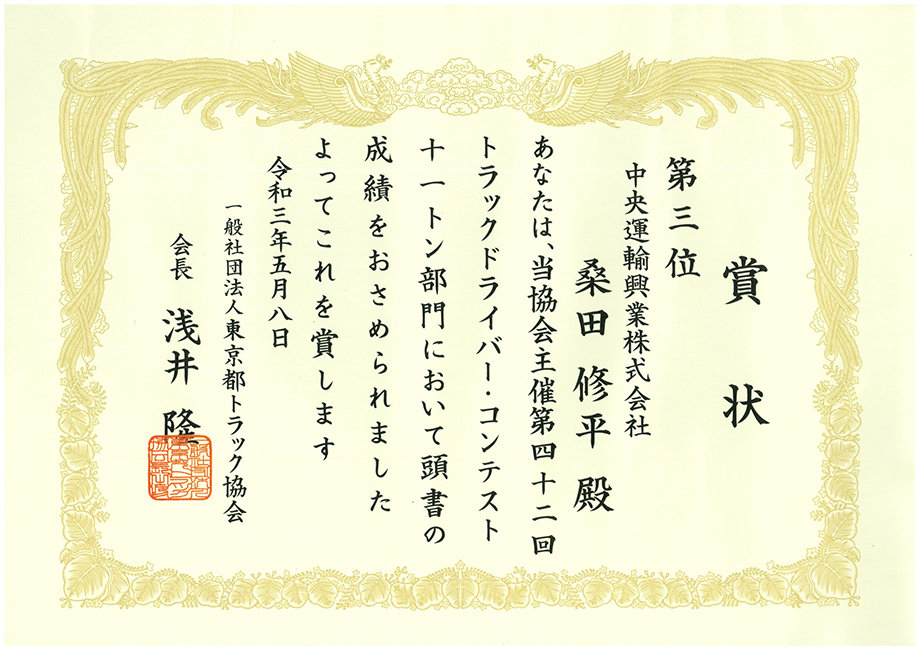 賞状
第三位
中央運輸興業株式会社
桑田修平殿
あなたは、当協会主催第四十二回
トラックドライバー・コンテスト
十一トン部門において頭書の
成績をおさめられました
よってこれを賞します
令和三年五月八日
一般社団法人東京都トラック協会
会長 浅井隆